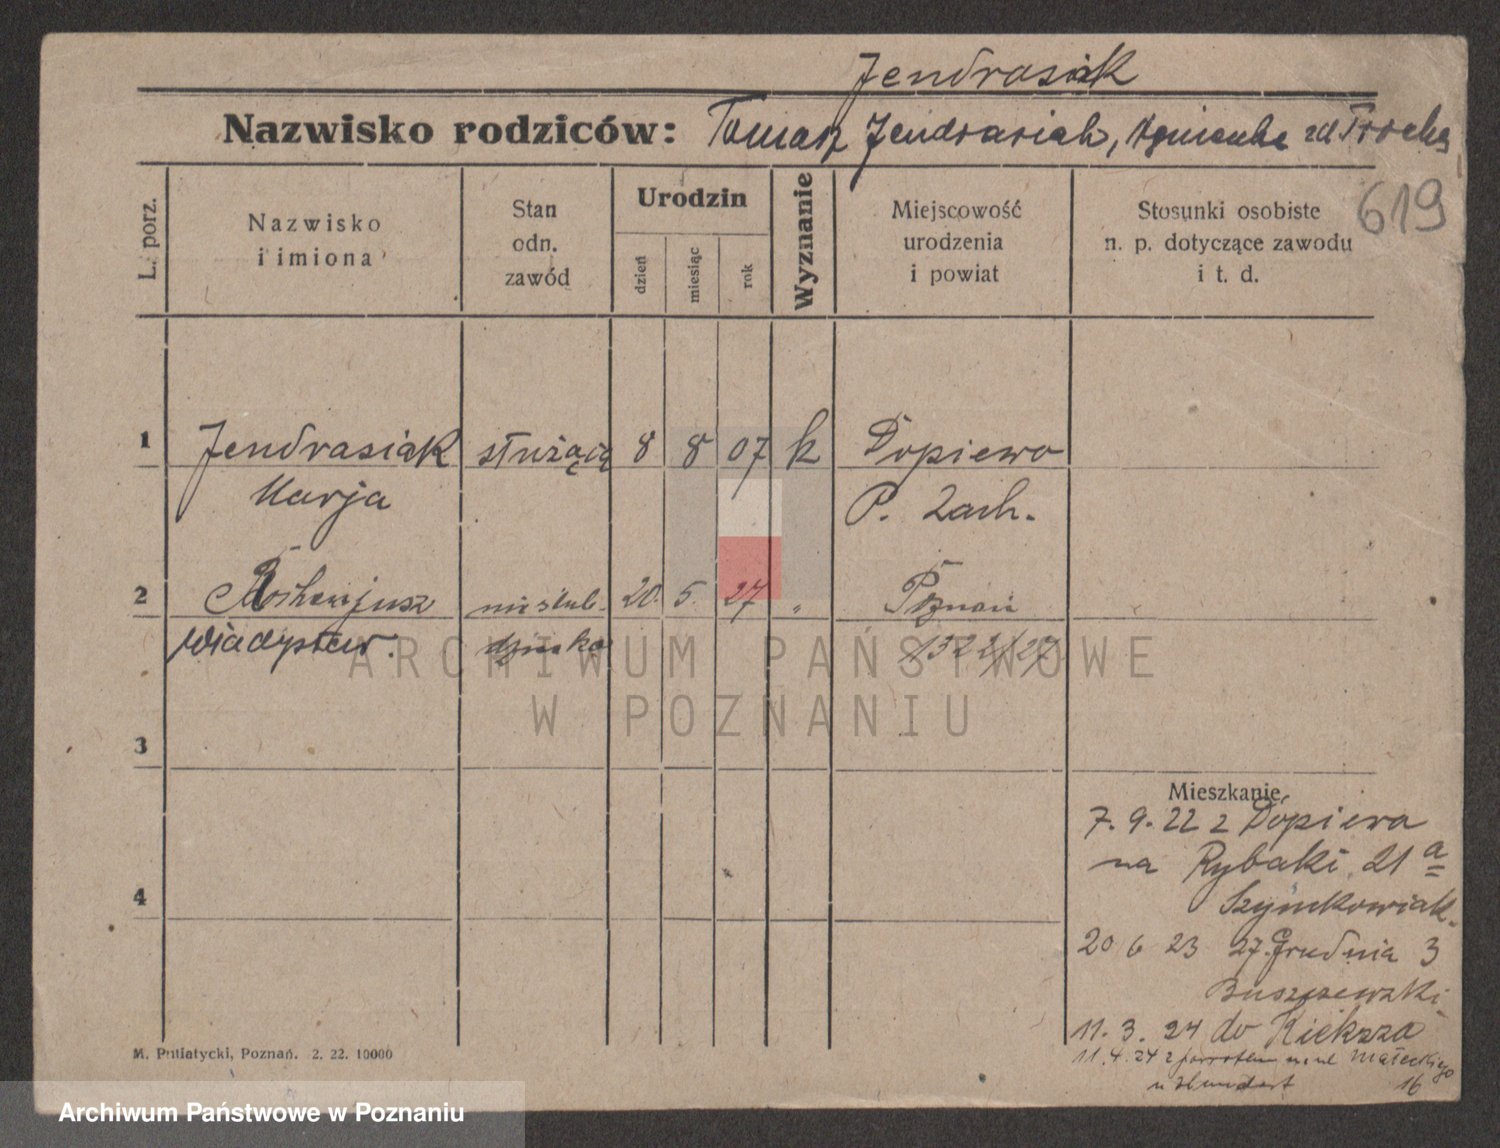 Jendrasiak
Nazwisko rodziców: Tomasz Jendrasiak, Agnieszka zd Troch
619
L. porz.
Nazwisko i imiona
Stan odn. zawód
Urodzin
dzień
miesiąc
rok
Wyznanie
Miejscowość urodzenia i powiat
Stosunki osobiste n. p. dotyczące zawodu i t. d.
1 Jendrasiak służącą 8 8 07 k Dopiewo
Marja P. Zach.
2 nieślub. 20. 5. 27 „ Poznań
Władysław. dziecko 1322/27
3
4
Mieszkanie
7. 9. 22 z Dopiewa
na Rybaki 21 a
Szymkowiak.
20 6 23 27. Grudnia 3
Buszczewski
11. 3. 24 do Kiekrza
11. 4. 24 z powrotem na ul Małeckiego
u 16
M. Putiatycki, Poznań. 2. 22. 10000
ARCHIWUM PAŃSTWOWE
W POZNANIU
Archiwum Państwowe w Poznaniu